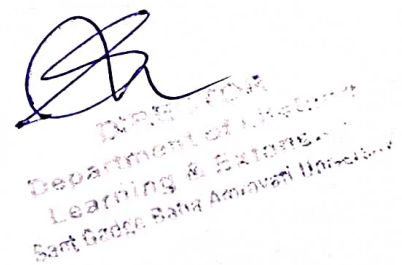 DIRECTOR
Department of Lifelong
Learning & Extens
Sant Gadge Baba Amravati University